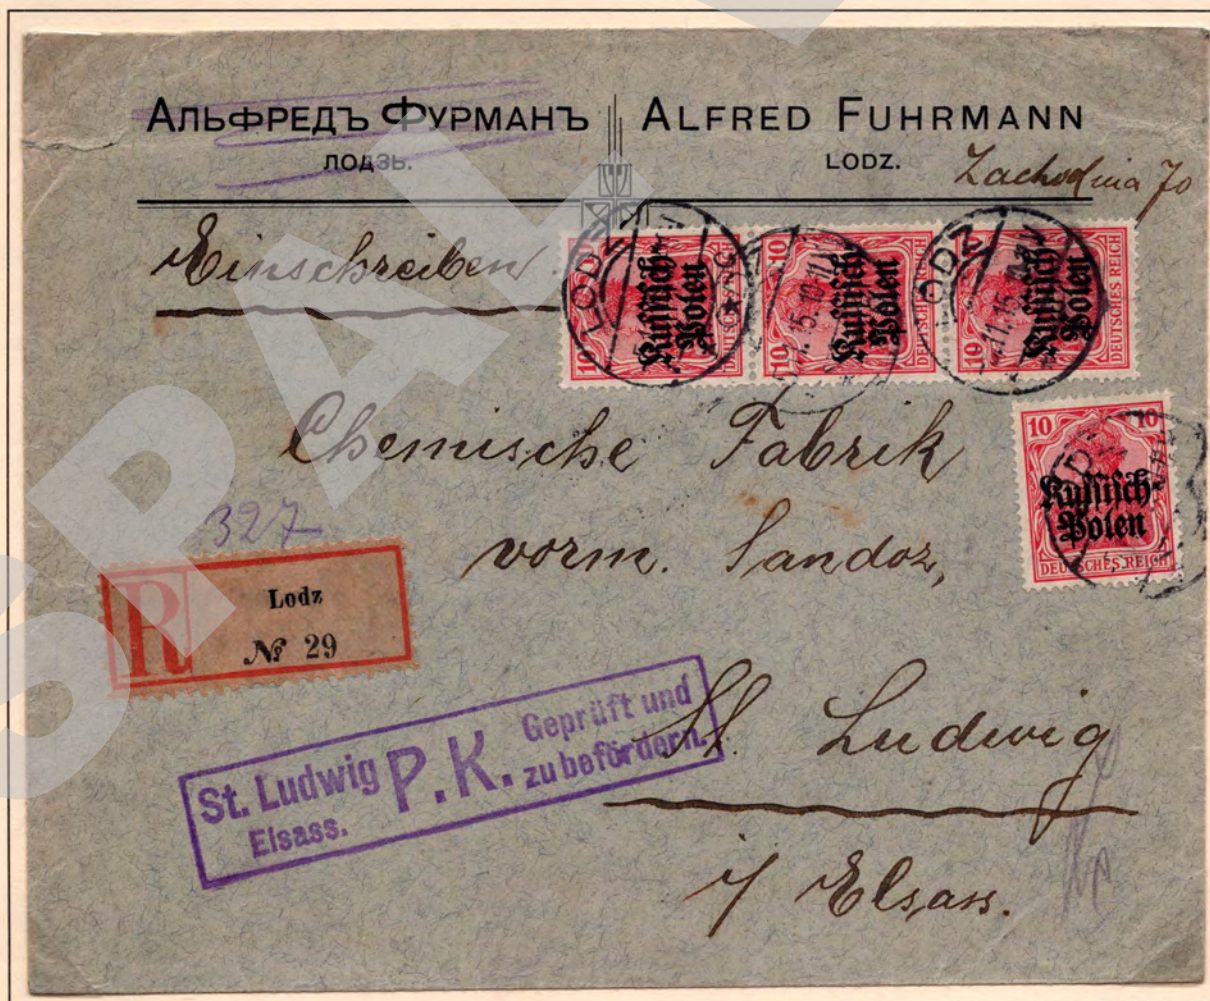 АЛЬФРЕДЪ ФУРМАНЪ
ЛОДЗЬ.
ALFRED FUHRMANN
LODZ.
Zachodnia 70
Einschreiben.
LODZ
15.10-11V
LODZ
.11.15
10 DEUTSCHES REICH
Russisch-
Polen
10 10 DEUTSCHES REICH
Russisch-
Polen
10 DEUTSCHES REICH
Russisch-
Polen
10 10
Russisch-
Polen
DEUTSCHES REICH
Chemische Fabrik
vorm. Sandoz,
St. Ludwig
i/ Elsass.
327
R
Lodz
№ 29
St. Ludwig
Elsass.
P.K.
Geprüft und
zu befördern.
SPAL